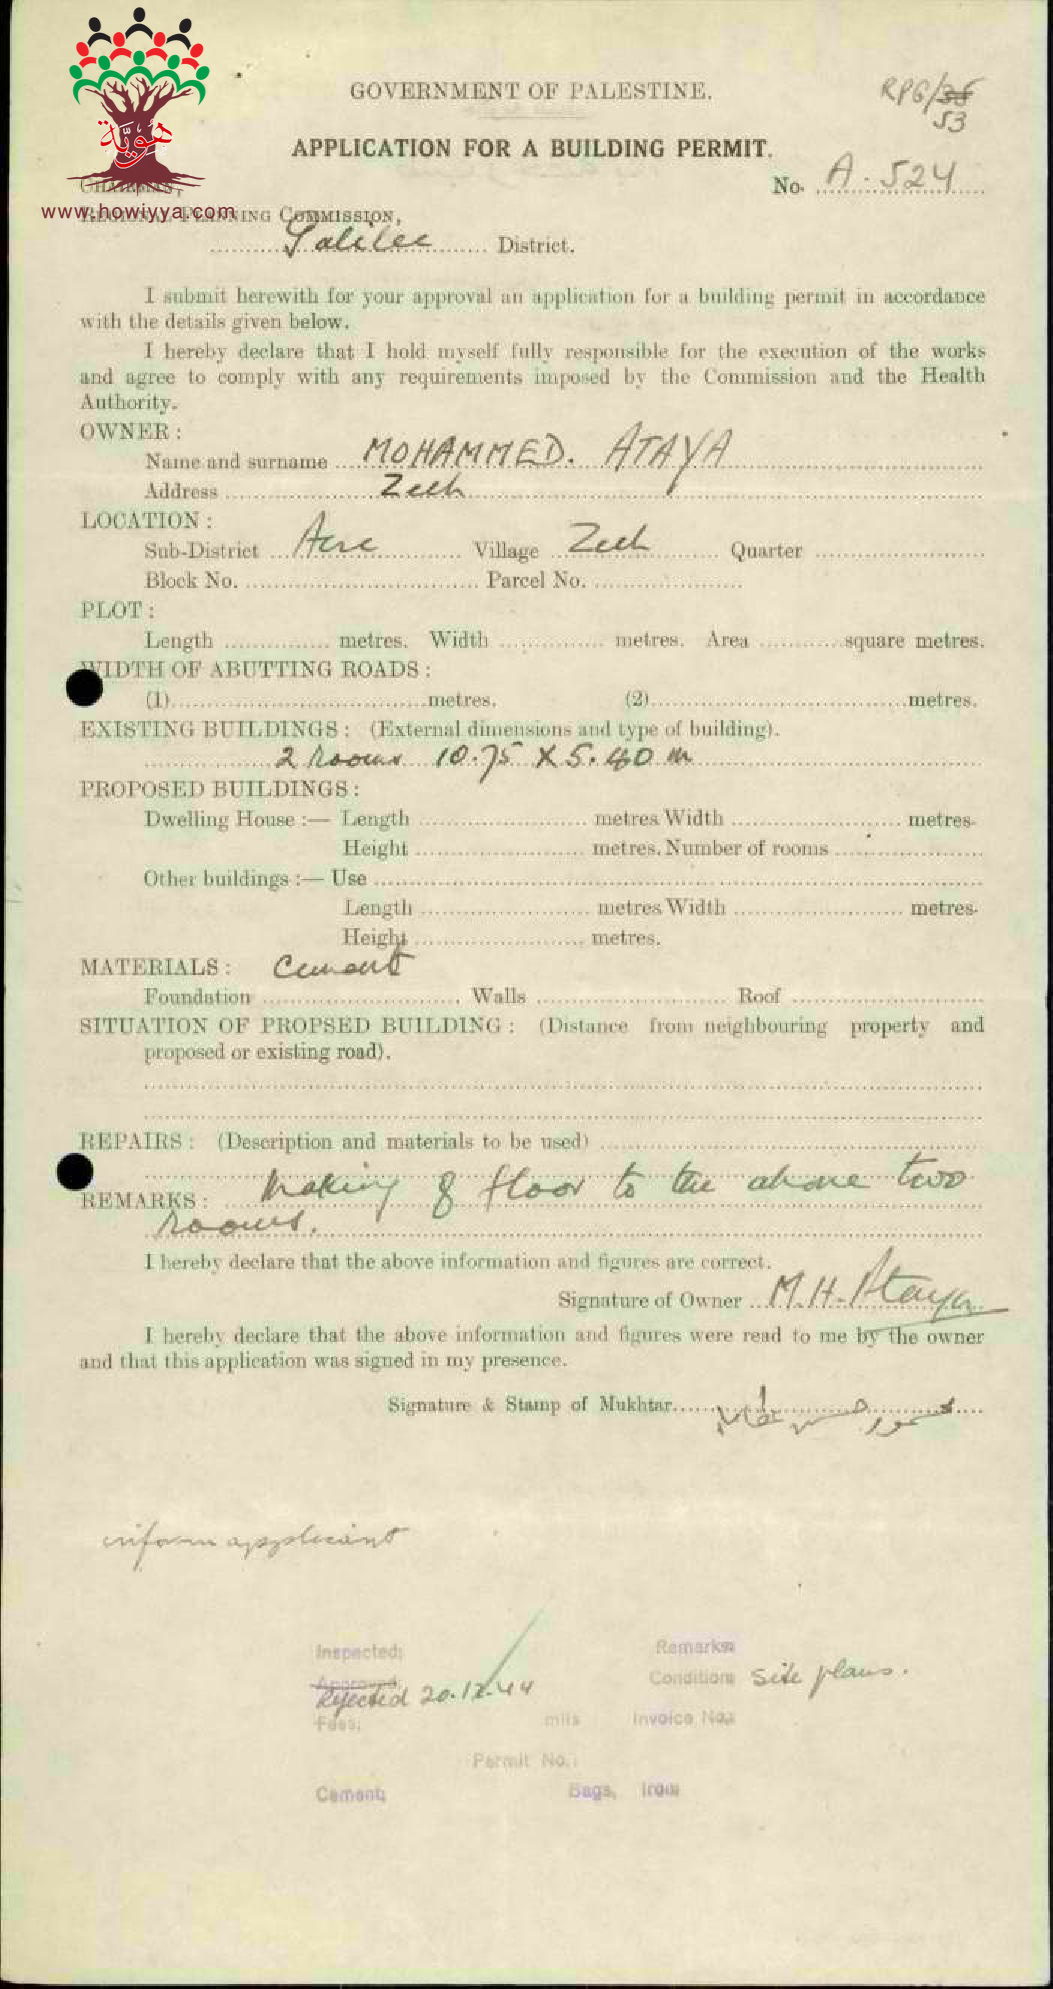 هوية
www.howiyya.com
GOVERNMENT OF PALESTINE.
RPG/36
53
APPLICATION FOR A BUILDING PERMIT.
No. A. 524
CHAIRMAN,
REGIONAL PLANNING COMMISSION,
Galilee District.
I submit herewith for your approval an application for a building permit in accordance
with the details given below.
I hereby declare that I hold myself fully responsible for the execution of the works
and agree to comply with any requirements imposed by the Commission and the Health
Authority.
OWNER :
Name and surname MOHAMMED. ATAYA
Address Zeeb
LOCATION :
Sub-District Acre Village Zeeb Quarter
Block No. Parcel No.
PLOT :
Length metres. Width metres. Area square metres.
WIDTH OF ABUTTING ROADS :
(1) metres. (2) metres.
EXISTING BUILDINGS : (External dimensions and type of building).
2 Rooms 10.75 X 5.40 m
PROPOSED BUILDINGS :
Dwelling House :— Length metres Width metres.
Height metres. Number of rooms
Other buildings :— Use
Length metres Width metres.
Height metres.
MATERIALS : Cement
Foundation Walls Roof
SITUATION OF PROPSED BUILDING : (Distance from neighbouring property and
proposed or existing road).
REPAIRS : (Description and materials to be used)
REMARKS : Making of floor to the above two
rooms.
I hereby declare that the above information and figures are correct.
Signature of Owner M.H. Ataya
I hereby declare that the above information and figures were read to me by the owner
and that this application was signed in my presence.
Signature & Stamp of Mukhtar
inform applicant
Inspected: Remarks
Approved: Conditions site plans.
Rejected 20.12.44
Fees: mils Invoice No.
Permit No.:
Cement: Bags, Iron